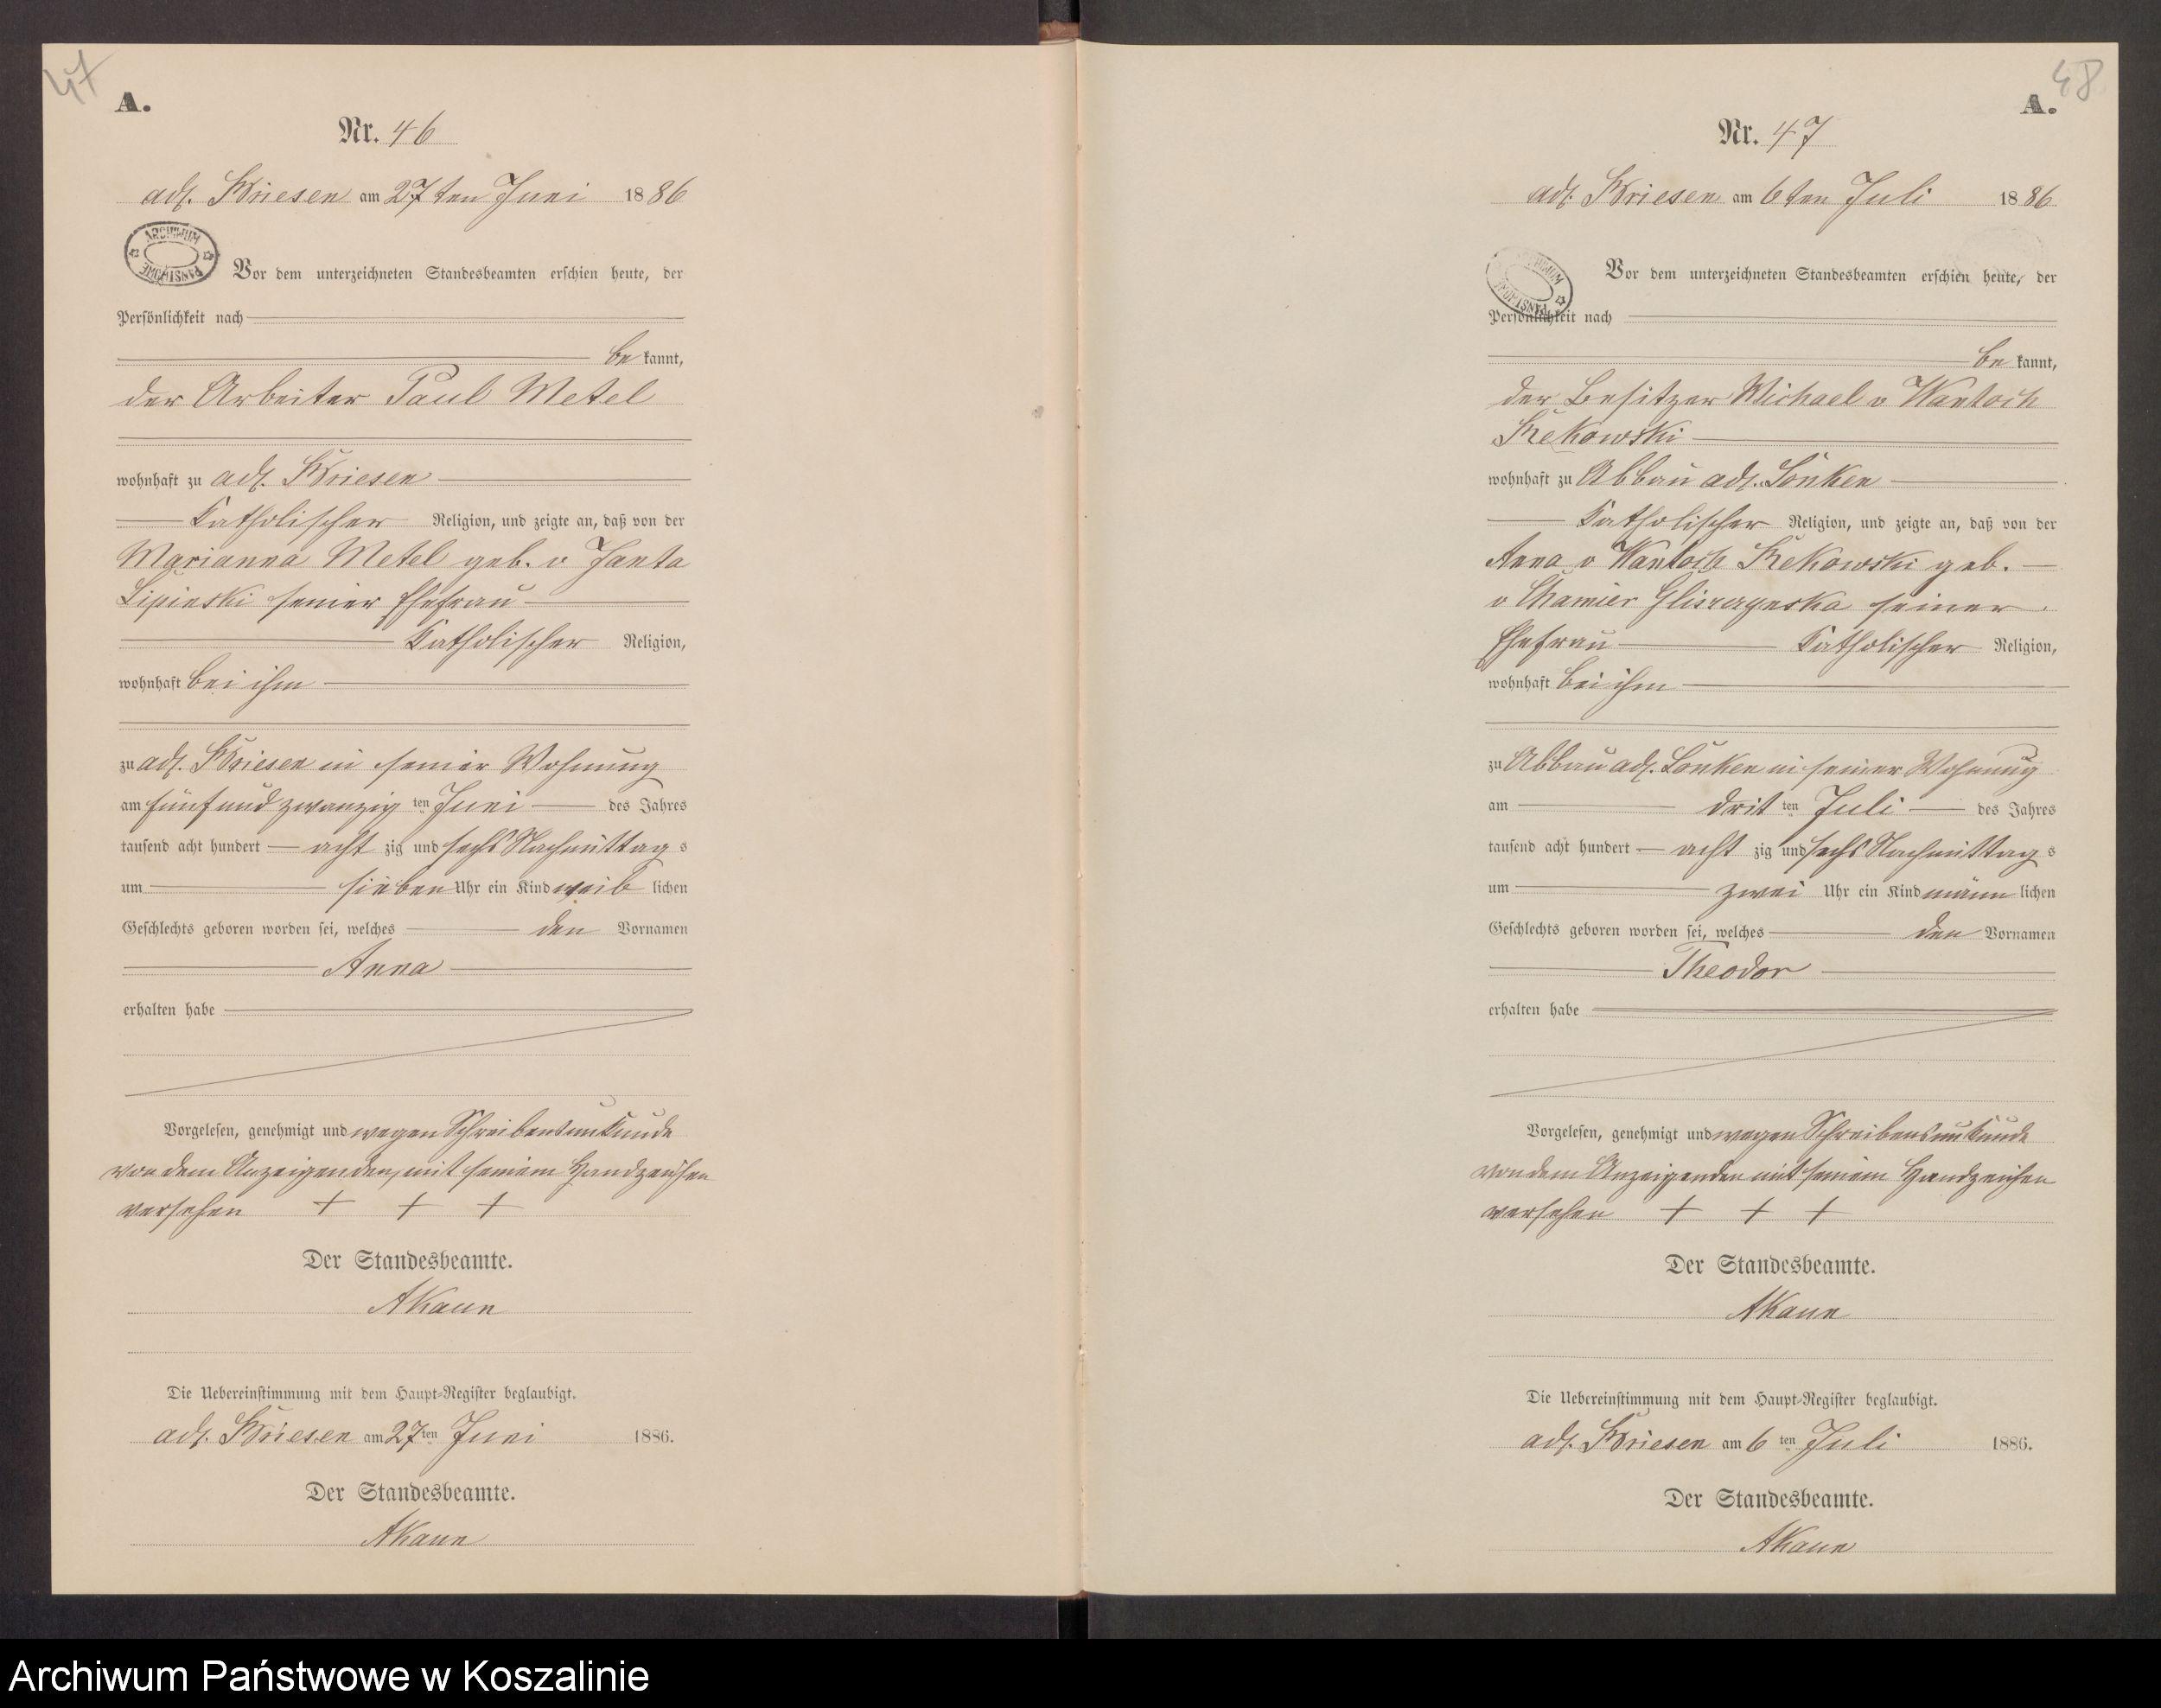 47
A.
Nr. 46
adl. Briesen am 27ten Juni 1886
ARCHIWUM PAŃSTWOWE
Vor dem unterzeichneten Standesbeamten erschien heute, der
Persönlichkeit nach
be kannt,
der Arbeiter Paul Metel
wohnhaft zu adl. Briesen
Katholischer Religion, und zeigte an, daß von der
Marianna Metel geb. v Janta
Lipinski seiner Ehefrau
Katholischer Religion,
wohnhaft bei ihm
zu adl. Briesen in seiner Wohnung
am fünf und zwanzig ten Juni des Jahres
tausend acht hundert acht zig und sechs Nachmittag s
um sieben Uhr ein Kind weib lichen
Geschlechts geboren worden sei, welches den Vornamen
Anna
erhalten habe
Vorgelesen, genehmigt und wegen Schreibensunkunde
von dem Anzeigenden, mit seinem Handzeichen
versehen + + +
Der Standesbeamte.
AKaun
Die Uebereinstimmung mit dem Haupt-Register beglaubigt.
adl. Briesen am 27ten Juni 1886.
Der Standesbeamte.
AKaun
48
A.
Nr. 47
adl. Briesen am 6ten Juli 1886
ARCHIWUM PAŃSTWOWE
Vor dem unterzeichneten Standesbeamten erschien heute, der
Persönlichkeit nach
be kannt,
der Besitzer Michael v Wantoch
Rekowski
wohnhaft zu Abbau adl. Lonken
Katholischer Religion, und zeigte an, daß von der
Anna v Wantoch Rekowski geb.
v Chamier seiner
Ehefrau Katholischer Religion,
wohnhaft bei ihm
zu Abbau adl. Lonken in seiner Wohnung
am drit ten Juli des Jahres
tausend acht hundert acht zig und sechs Nachmittag s
um zwei Uhr ein Kind männ lichen
Geschlechts geboren worden sei, welches den Vornamen
Theodor
erhalten habe
Vorgelesen, genehmigt und wegen Schreibensunkunde
von dem Anzeigenden mit seinem Handzeichen
versehen + + +
Der Standesbeamte.
AKaun
Die Uebereinstimmung mit dem Haupt-Register beglaubigt.
adl. Briesen am 6 ten Juli 1886.
Der Standesbeamte.
AKaun
Archiwum Państwowe w Koszalinie